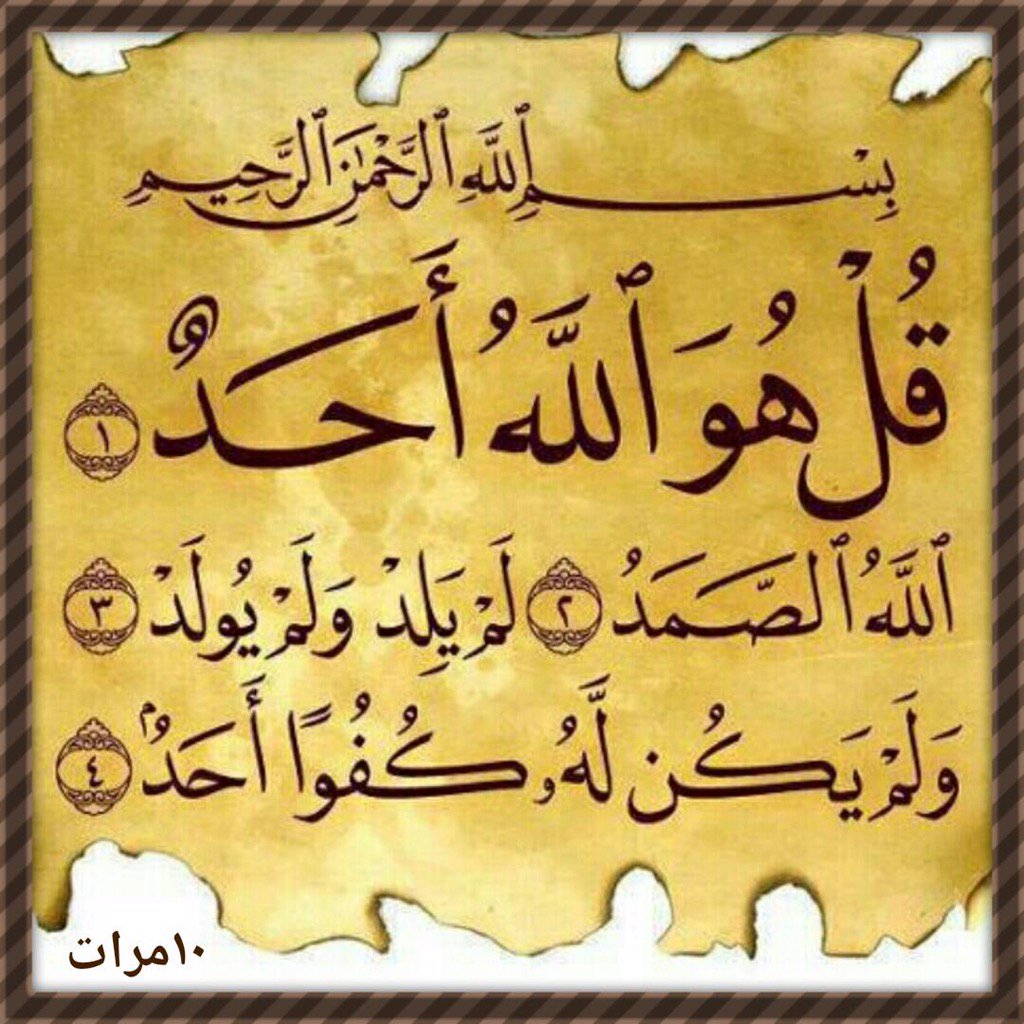 بِسْمِ ٱللَّهِ ٱلرَّحْمَٰنِ ٱلرَّحِيمِ
قُلْ هُوَ ٱللَّهُ أَحَدٌ ١
ٱللَّهُ ٱلصَّمَدُ ٢ لَمْ يَلِدْ وَلَمْ يُولَدْ ٣
وَلَمْ يَكُن لَّهُۥ كُفُوًا أَحَدٌۢ ٤
١٠مرات